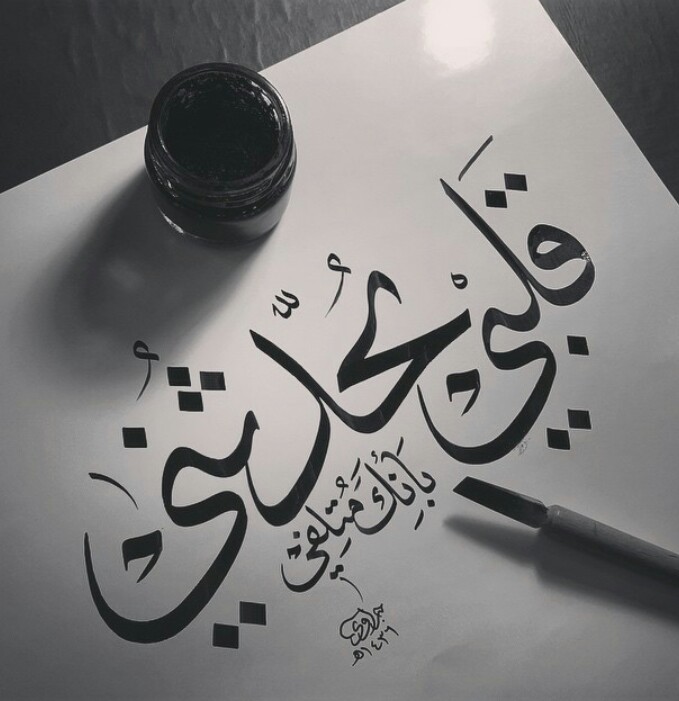 قلبي يُحدّثُني
بأَنكَ مُتلِفي
١٤٣٦هـ